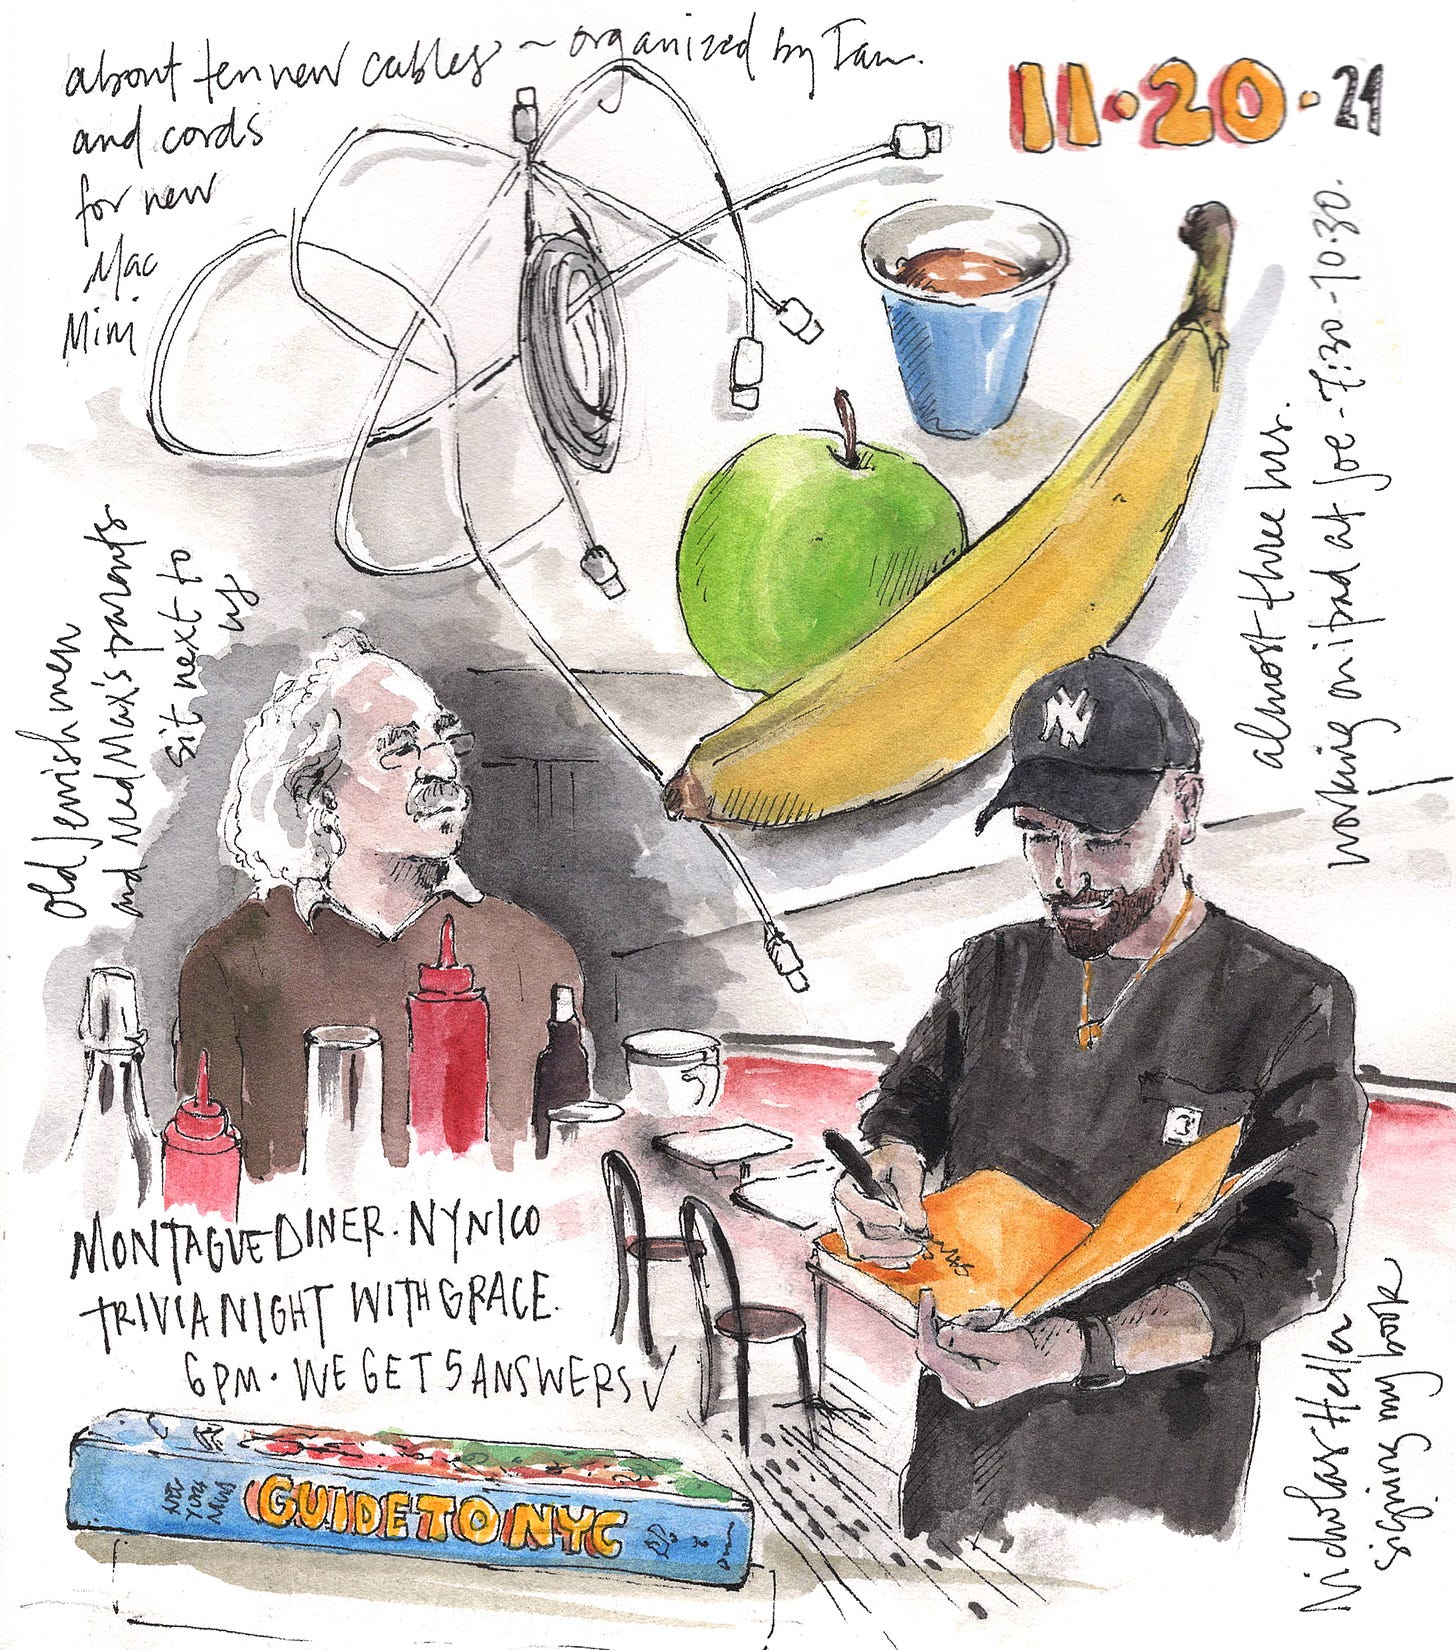 about ten new cables ~ organized by Ian.
and cords
for new
Mac
Mini
11·20·24
almost three hrs.
working on ipad at Joe - 7:30-10:30.
old Jewish men
and Mad Max's parents
sit next to
us
NY
MONTAGUE DINER. NYNICO
TRIVIA NIGHT WITH GRACE.
6PM. WE GET 5 ANSWERS ✓
Nicholas Heller
signing my book
NEW
YORK
GUIDE TO NYC